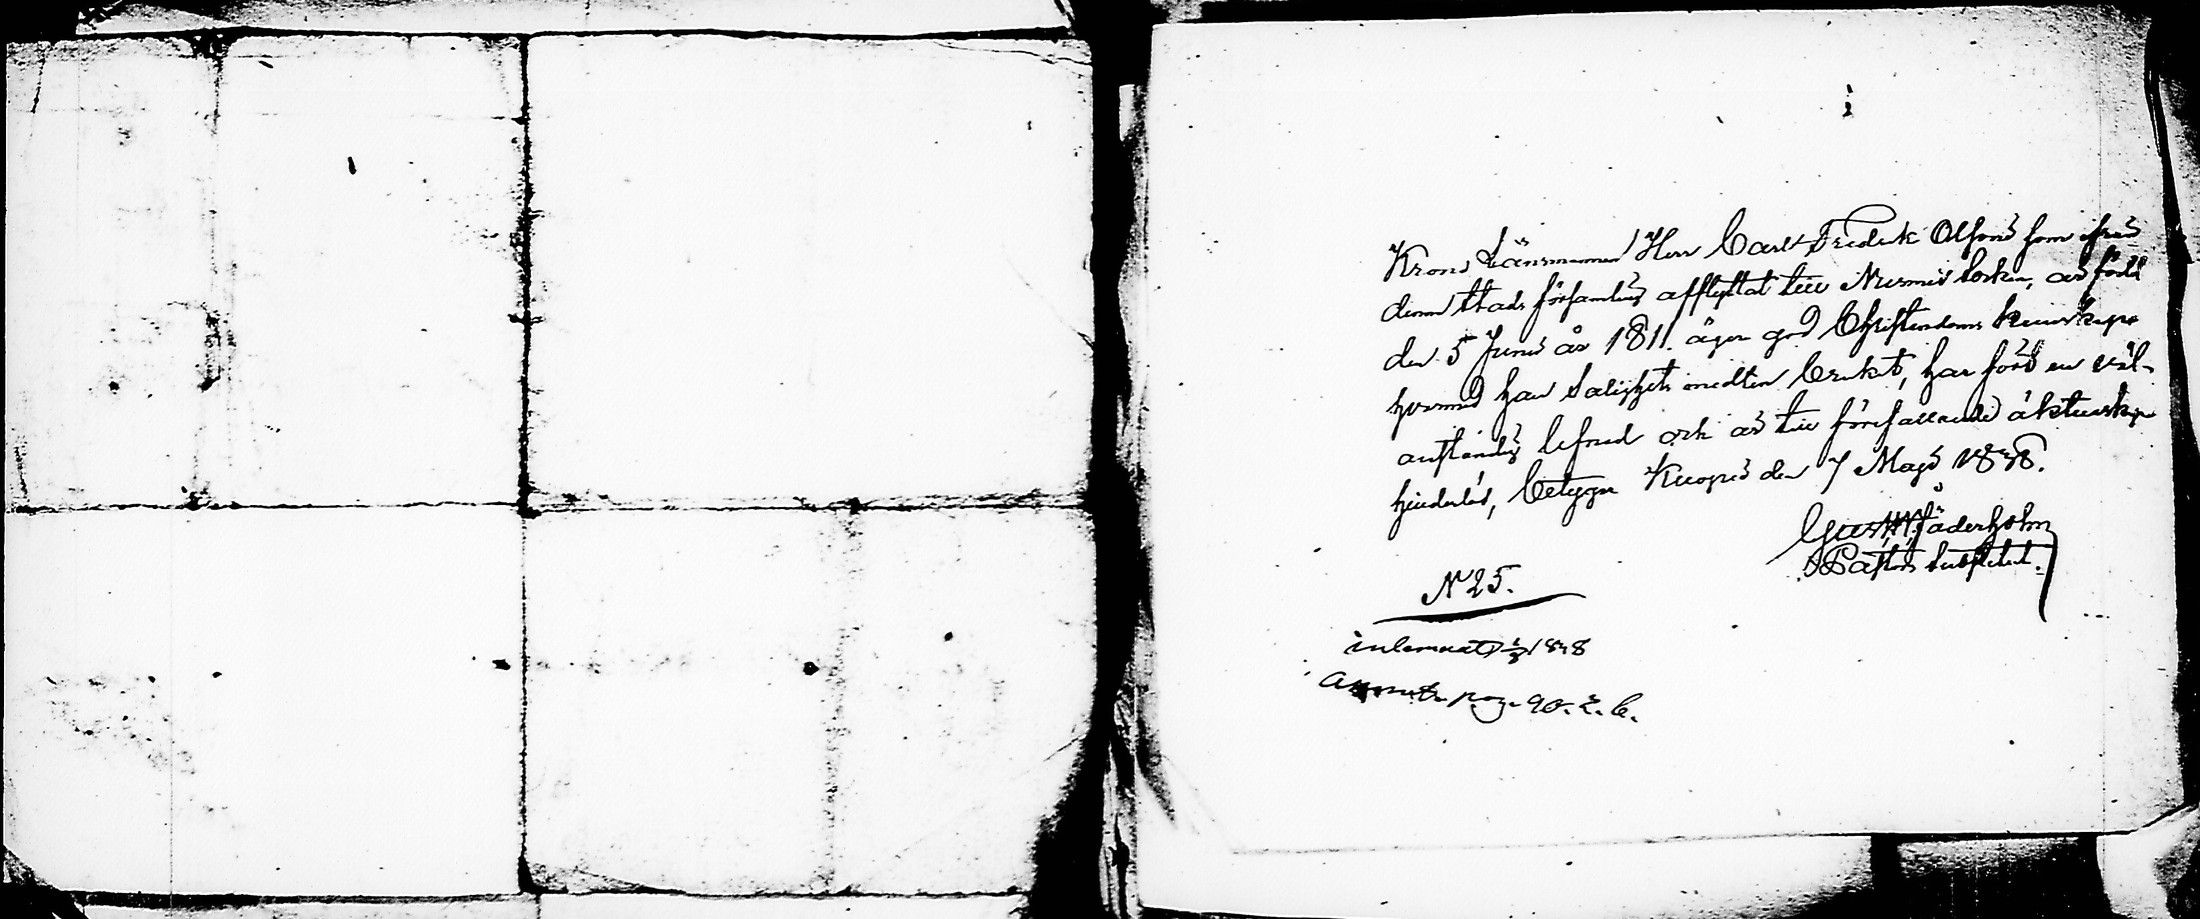 Krono Länsmannen Herr Carl Fredrik Alfons som ifrån
denna Stads församling afflyttat till Nurmis Sockn, är född
den 5 Junii år 1811. äger god Christendoms kunskap
hvarmed han Salighets medlen brukat, har fört en väl-
anständig lefnad och är till förefallande äktenskap
hinderlös, betygar Kuopio den 7 Maji 1838.
Gust. W. Jäderholm
Pastors Substitut.
N 25.
inlemnat 1838
pag. 90.